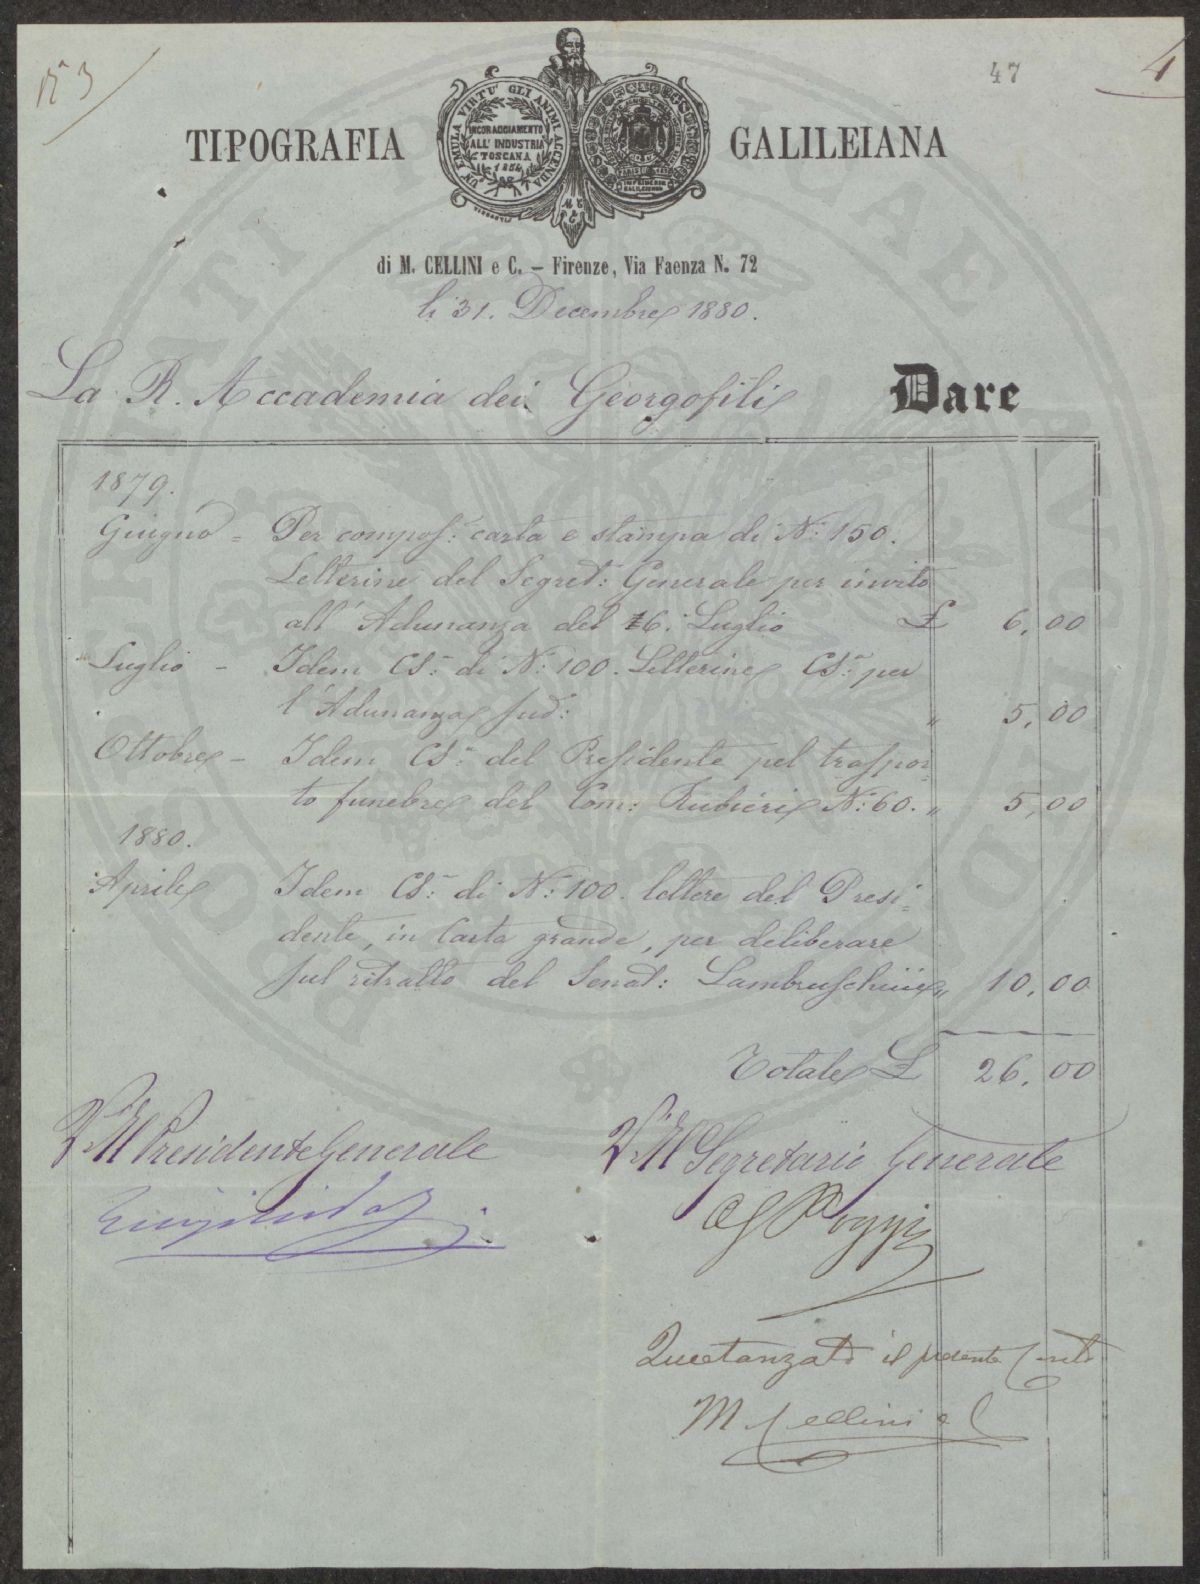 N° 3
47
4
TIPOGRAFIA GALILEIANA
UN'EMULA VIRTU' GLI ANIMI ACCENDA
INCORAGGIAMENTO
ALL' INDUSTRIA
TOSCANA
1854
di M. CELLINI e C. – Firenze, Via Faenza N. 72
li 31. Decembre 1880.
La R. Accademia dei Georgofili Dare
1879.
Giugno = Per compos.: carta e stampa di N: 150.
Letterine del Segret: Generale per invito
all' Adunanza del 16. Luglio £ 6,00
Luglio – Idem Cs: di N: 100. Letterine Cs: per
l'Adunanza sud: " 5,00
Ottobre – Idem Cs: del Presidente pel traspor=
to funebre del Com: Rubieri N: 60. " 5,00
1880.
Aprile Idem Cs: di N: 100. lettere del Presi=
dente, in Carta grande, per deliberare
sul ritratto del Senat: Lambruschini " 10,00
Totale £ 26,00
V. Il Presidente Generale
V. Il Segretario Generale
Poggi
Quetanzato il presente Conto
M Cellini e C